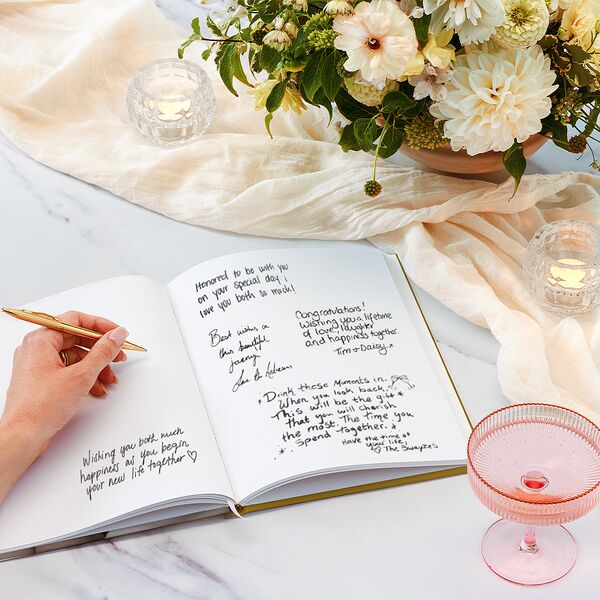 Wishing you both much
happiness as you begin
your new life together ♡
Honored to be with you
on your special day i
love you both so much!
Best wishes on
this beautiful
Congratulations!
Wishing you a lifetime
of love, laughter
and happiness together.
Tim + Daisy x
Drink these moments in.
When you look back,
This will be the gift *
that you will cherish
the most. The time you
Spend together. *
Have the time of
your life,
♡ The Swayzes